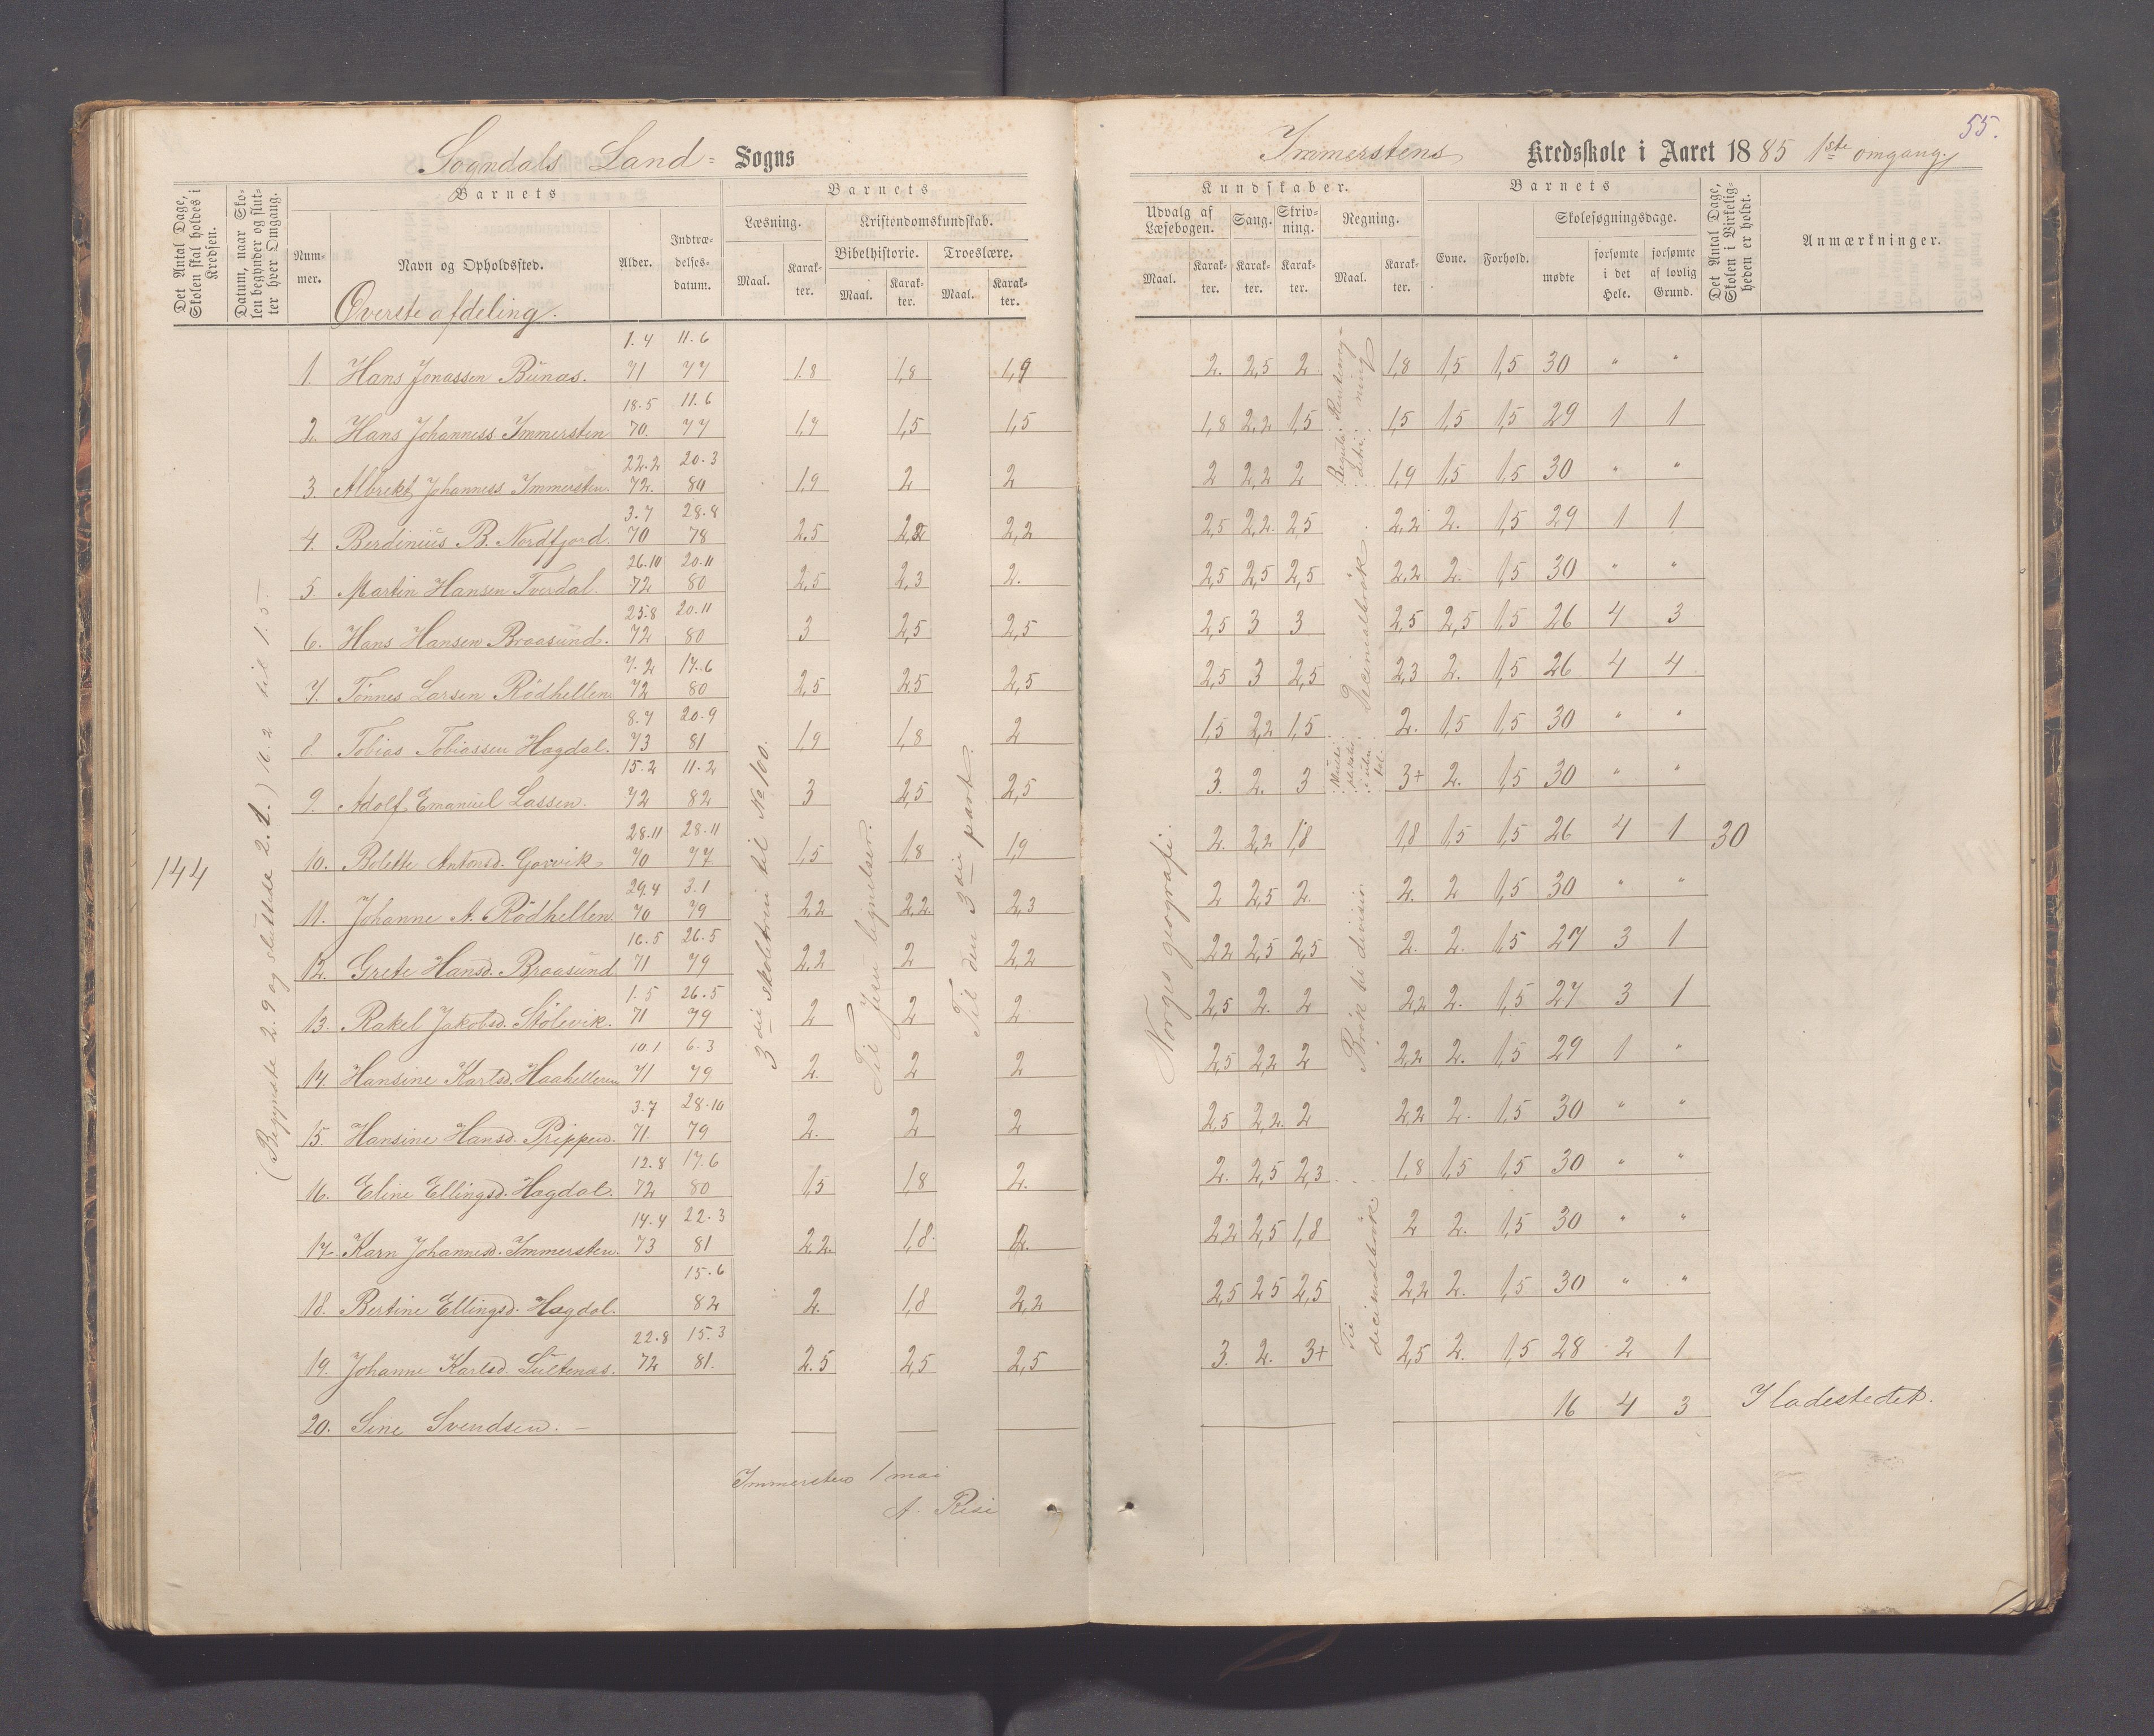 Sogndals Land = Sogns
Det Antal Dage, Skolen skal holdes i Kredsen.
Datum, naar Skolen begynder og slutter hver Omgang.
Barnets
Nummer.
Navn og Opholdssted.
Alder.
Indtrædelsesdatum.
Barnets
Læsning.
Maal.
Karakter.
Kristendomskundskab.
Bibelhistorie.
Maal.
Karakter.
Troeslære.
Maal.
Karakter.
Øverste afdeling.
1. Hans Jonassen Bunæs. 1.4 71 11.6 77 1.8 1,8 1,9
2. Hans Johanness Immersten 18.5 70. 11.6 77 1,7 1,5 1,5
3. Albrekt Johanness. Immersten. 22.2 72. 20.3 80 1,9 2 2
4. Berdinius B. Nordfjord. 3.7 70 28.8 78 2.5 2,2 2,2
5. Martin Hansen Tverdal. 26.10 72 20.11 80 2,5 2,3 2.
6. Hans Hansen Braasund. 25.8 72 20.11 80 3 2,5 2,5
7. Tönnes Larsen Rödhellen 7.2 72 17.6 80 2,5 2,5 2,5
8 Tobias Tobiassen Hagdal. 8.7 73 20.9 81 1,9 1,8 2
9. Adolf Emanuel Lassen. 15.2 72 11.2 82 3 2,5 2,5
10. Bolette Antonsd. Gorvik 28.11 70 28.11 77 1,5 1,8 1,9
11. Johanne A. Rödhellen. 29.4 70 3.1 79 2,2 2,2. 2,3
12. Grete Hansd. Braasund 16.5 71 26.5 79 2,2 2 2,2
13. Rakel Jakobsd. Stölevik. 1.5 71 26.5 79 2 2 2
14. Hansine Karlsd. Haahelleren 10.1 71 6.3 79 2. 2 2
15. Hansine Hansd. Prippen. 3.7 71. 28.10 79 2. 2 2
16. Eline Ellingsd. Hagdal. 12.8 72 17.6 80 1,5 1,8 2.
17. Karn Johannesd. Immersten. 14.4 73 22.3 81 2,2. 1,8. 2.
18. Bertine Ellingsd. Hagdal. 15.6 82 2. 1,8 2,2
19. Johanne Karlsd. Sultenæs. 22.8 72 15.3 81. 2.5 2,5 2,5
20. Sine Svendsen. —
144
(Begynte 2.9 og sluttede 2.1.) 16.2 til 1.5-
3die skoletrin til No 100.
Til Jesu lignelser.
Til den 3die part.
Immersten 1 mai
A. Risi
55.
Immerstens Kredsskole i Aaret 1885 1ste omgang.
Kundskaber.
Udvalg af Læsebogen.
Maal.
Karakter.
Sang.
Karakter.
Skrivning.
Karakter.
Regning.
Maal.
Karakter.
Barnets
Evne.
Forhold.
Skolesøgningsdage.
mødte
forsømte i det Hele.
forsømte af lovlig Grund.
Det Antal Dage, Skolen i Virkeligheden er holdt.
Anmærkninger.
2. 2,5 2 1,8 1,5 1,5 30 " "
1,8 2,2 1,5 1,5 1,5 1,5 29 1 1
2 2,2 2 1,9 1,5 1,5 30 " "
2,5 2,2. 2,5 2,2 2. 1,5 29 1 1
2,5 2,5 2,5 2,2 2. 1,5 30 " "
2,5 3 3 2,5 2,5 1,5 26 4 3
2,5 3 2,5 2,3 2. 1,5 26 4 4
1,5 2,2 1,5 2. 1,5 1,5 30 " "
3. 2. 3 3+ 2. 1,5 30 " "
2. 2,2 1,8 1,8 1,5 1,5 26 4 1 30
2 2,5 2. 2. 2 1,5 30 " "
2,2 2,5 2,5 2. 2. 1,5 27 3 1
2,5 2. 2 2,2 2. 1,5 27 3 1
2,5 2,2 2 2,2 2. 1,5 29 1 "
2,5 2,2. 2 2,2 2. 1,5 30 " "
2. 2,5 2,3 1,8 1,5 1,5 30 " "
2,2 2,5 1,8 2 2. 1,5 30 " "
2,5 2,5 2,5 2,2 2. 1,5 30 " "
3. 2. 3+ 2,5 2. 1,5 28 2 1
16 4 3 I ladestedet.
Norges geografi.
Decimalbrök.
Brök til division
Til decimalbrök.